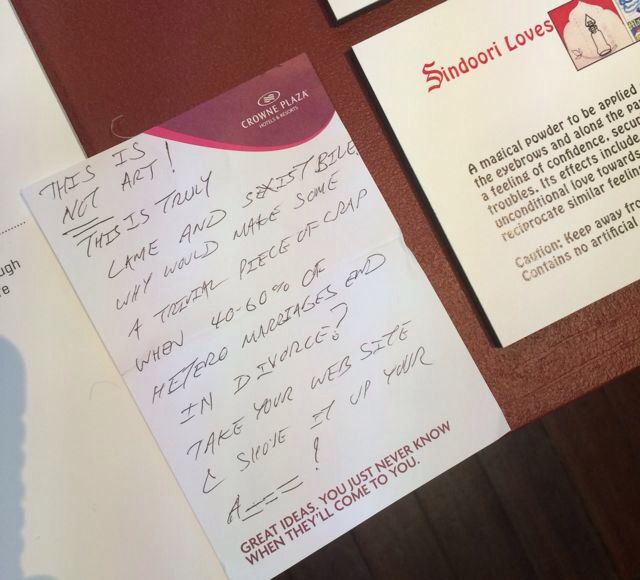 CROWNE PLAZA
HOTELS & RESORTS
THIS IS
NOT ART!
THIS IS TRULY
LAME AND SEXIST BILE.
WHY WOULD MAKE SOME
A TRIVIAL PIECE OF CRAP
WHEN 40-60% OF
HETERO MARRIAGES END
IN DIVORCE?
TAKE YOUR WEB SITE
& SHOVE IT UP YOUR
A---!
GREAT IDEAS. YOU JUST NEVER KNOW
WHEN THEY'LL COME TO YOU.
Sindoori Loves
A magical powder to be applied
the eyebrows and along the
a feeling of confidence, secur
troubles. Its effects include
unconditional love towards
reciprocate similar feelin
Caution: Keep away fro
Contains no artificial
ugh
re